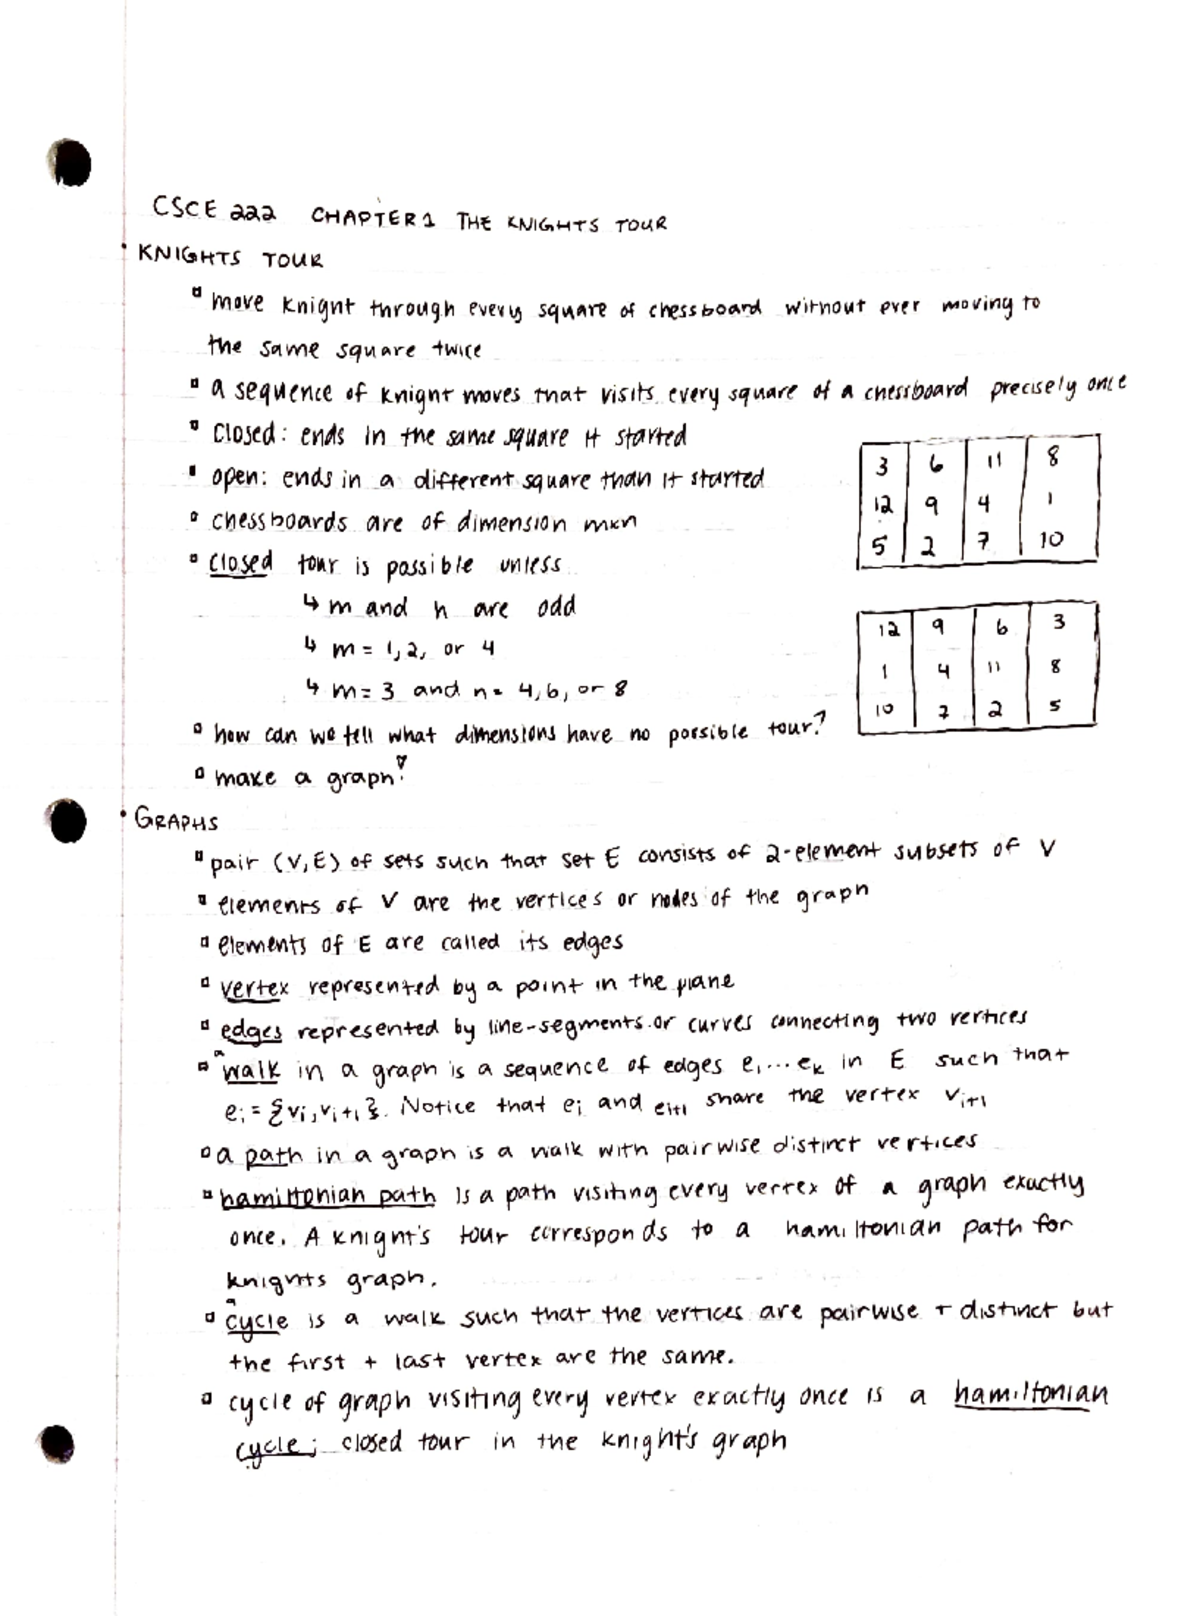 CSCE 222 CHAPTER 1 THE KNIGHTS TOUR
• KNIGHTS TOUR
▫ move knight through every square of chessboard without ever moving to
the same square twice
▫ a sequence of knight moves that visits every square of a chessboard precisely once
▫ closed: ends in the same square it started
▫ open: ends in a different square than it started
▫ chessboards are of dimension mxn
▫ closed tour is possible unless
↳ m and n are odd
↳ m = 1, 2, or 4
↳ m = 3 and n = 4, 6, or 8
▫ how can we tell what dimensions have no possible tour?
▫ make a graph!
3 6 11 8
12 9 4 1
5 2 7 10
12 9 6 3
1 4 11 8
10 7 2 5
• GRAPHS
▫ pair (V, E) of sets such that set E consists of 2-element subsets of V
▫ elements of V are the vertices or nodes of the graph
▫ elements of E are called its edges
▫ vertex represented by a point in the plane
▫ edges represented by line-segments or curves connecting two vertices
▫ a walk in a graph is a sequence of edges e₁...eₖ in E such that
eᵢ = {vᵢ, vᵢ₊₁}. Notice that eᵢ and eᵢ₊₁ share the vertex vᵢ₊₁
▫ a path in a graph is a walk with pairwise distinct vertices
▫ hamiltonian path is a path visiting every vertex of a graph exactly
once. A knight's tour corresponds to a hamiltonian path for
knights graph.
▫ a cycle is a walk such that the vertices are pairwise + distinct but
the first + last vertex are the same.
▫ cycle of graph visiting every vertex exactly once is a hamiltonian
cycle; closed tour in the knight's graph